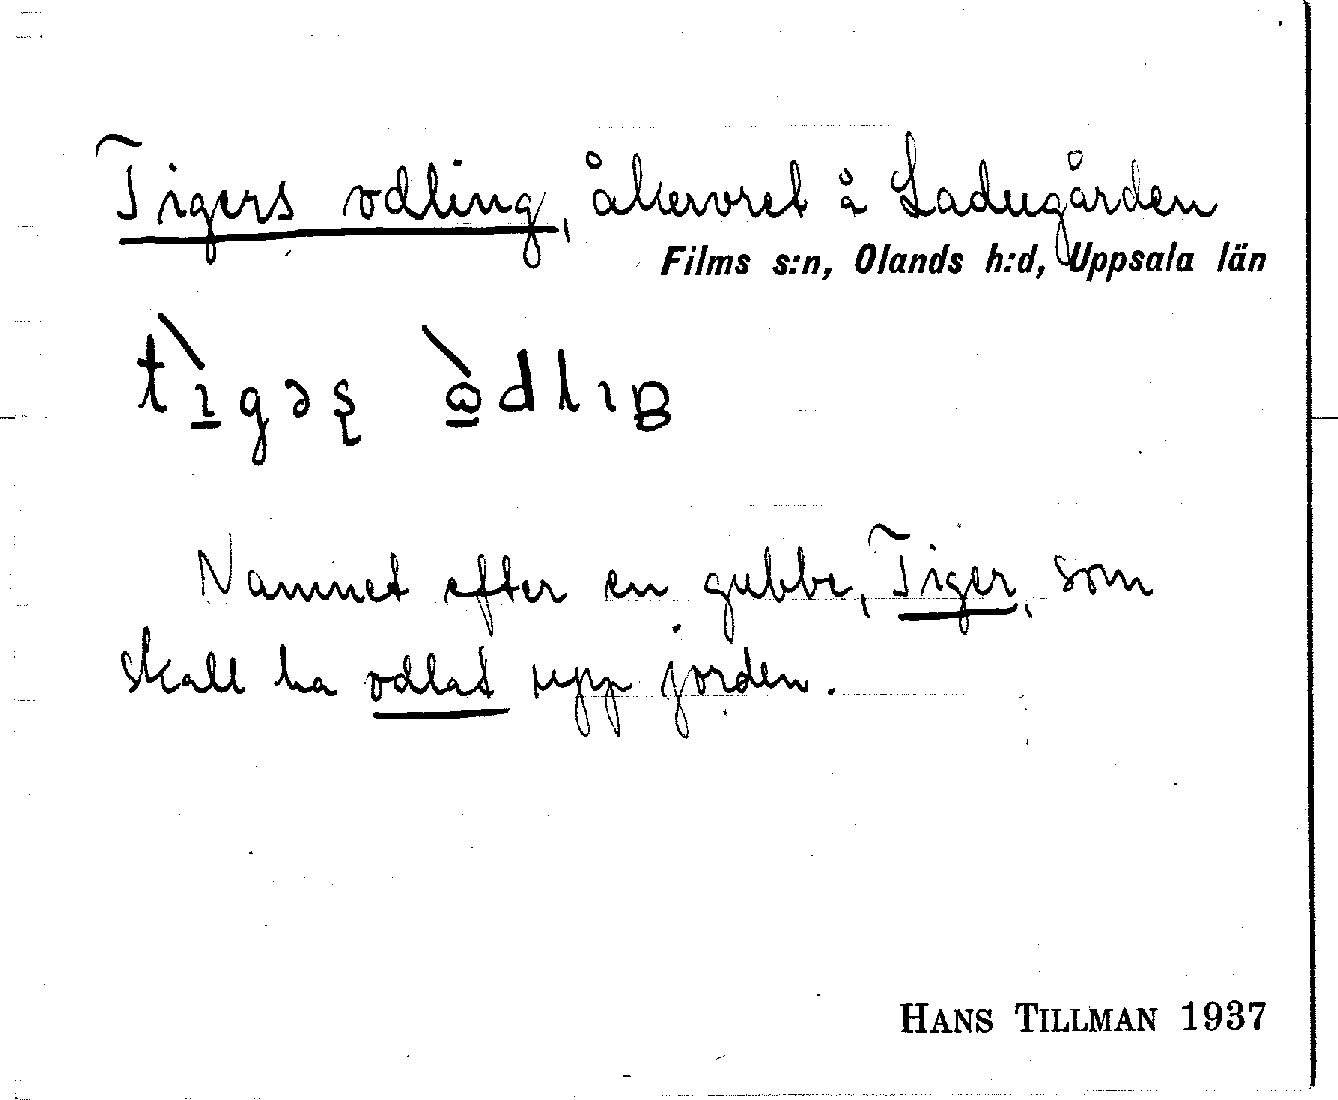 Tigers odling, åkervret å Ladugården
Films s:n, Olands h:d, Uppsala län
Namnet efter en gubbe, Tiger, som
skall ha odlat upp jorden.
HANS TILLMAN 1937